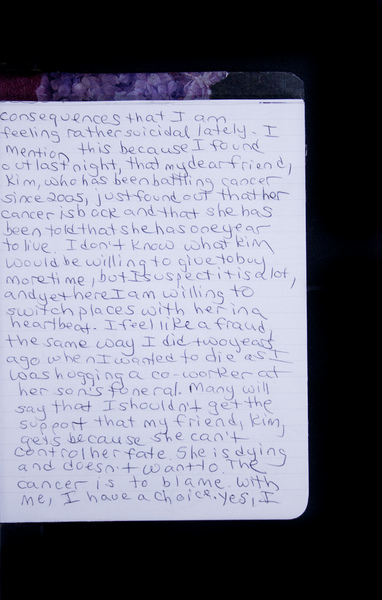 consequences that I am
feeling rather suicidal lately. I
mention this because I found
out last night, that my dear friend,
Kim, who has been battling cancer
since 2005, just found out that her
cancer is back and that she has
been told that she has one year
to live. I don't know what Kim
would be willing to give to buy
more time, but I suspect it is a lot,
and yet here I am willing to
switch places with her in a
heartbeat. I feel like a fraud,
the same way I did two years
ago when I wanted to die as I
was hugging a co-worker at
her son's funeral. Many will
say that I shouldn't get the
support that my friend, Kim,
gets because she can't
control her fate. She is dying
and doesn't want to. The
cancer is to blame. With
me, I have a choice. Yes, I